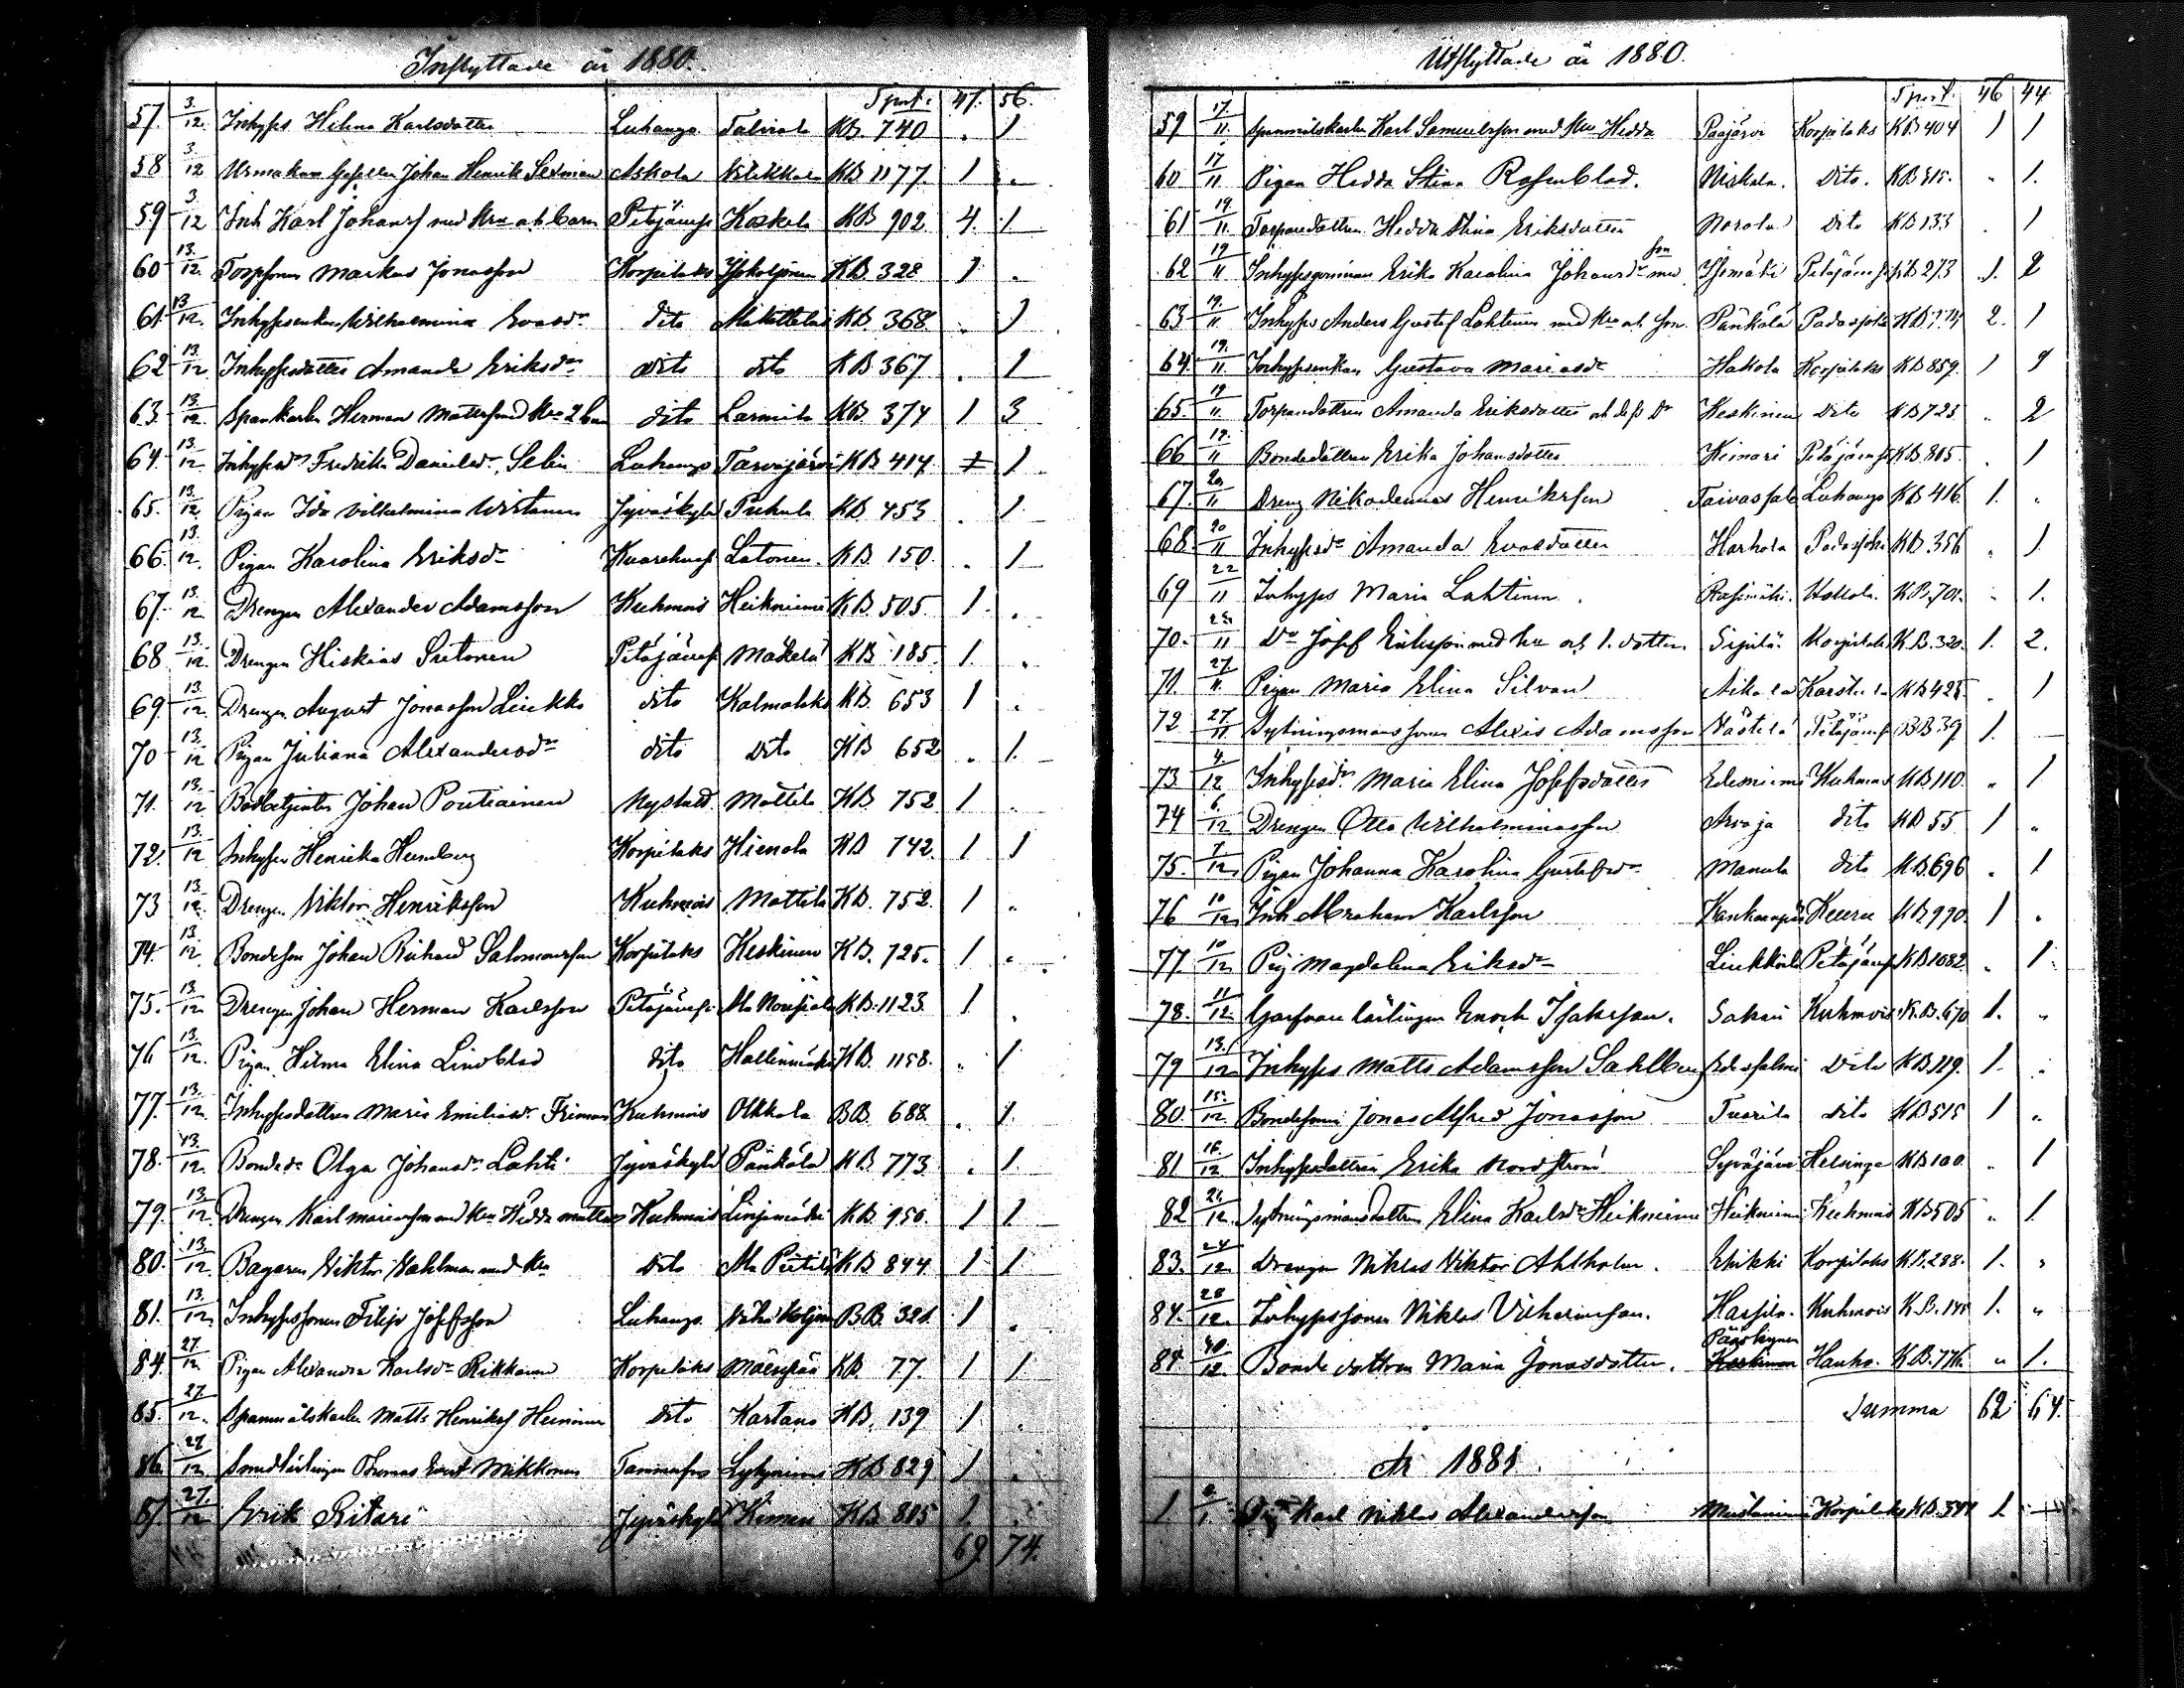 Inflyttade år 1880.
Tprt. 47. 56.
57. 3/12. Inhyses Helena Karlsdotter Luhango Talviala KB 740 . 1
58 3/12 Urmakare Gesellen Johan Henrik Askola KB 1177. 1 .
59 3/12 Inh Karl Johansf med Hru och barn Petäjämsi Koskela KB 902. 4. 1
60 13/12. Torpsonen Markus Jonasson Korpilaks KB. 328 1 .
61. 13/12. Inhysenkan Wilhelmina Evasdr dito KB. 368 . 1
62 13/12. Inhysesdotter Amanda Eriksdr dito dito KB 367 . 1
63. 13/12. Spankarlen Herman Mattsson med Hru 2 barn dito Larmila KB. 374 1 3
64. 13/12. Inhysesdr Fredrika Danielsdr Selin Luhango Tarvajärvi KB 414 1
65. 13/12 Pigan Ida Vilhelmina Wirtanen Jyväskylä Puhula KB 453 . 1
66. 13/12. Pigan Karolina Eriksdr Latonen. KB. 150. . 1
67. 13/12 Drengen Alexander Adamsson Kuhmois Heikniemi KB. 505. 1. .
68 13/12. Drengen Hiskias Sutonen Petäjämsi Mäkelä KB 185. 1. .
69. 13/12. Drengen August Jonasson Liukko dito Kalmalaks KB. 653 1 .
70 13/12 Pigan Juliana Alexandersdr dito dito KB 652 . 1.
71. 13/12. Johan Poutiainen Nystad Mattila KB 752 1 .
72. 13/12 Inhyses Henrika Korpilaks Hienola KB 742. 1 1
73 13/12. Drengen Viktor Henriksson Kuhmois Mattila KB. 752. 1 .
74. 13/12. Bondeson Johan Richard Salomonsson Korpilaks Keskinen KB. 725. 1 .
75. 13/12 Drengen Johan Herman Karlsson Petäjämsi KB. 1123. 1 .
76 13/12. Pigan Hilma Elina Lindblad dito Hallinmäki KB. 1158. . 1
77. 13/12. Inhysesdottren Maria Emiliasdr Friman Kuhmois Olkkola BB. 688. . 1.
78. 13/12. Bondedr Olga Johansdr Lahti Jyväskylä Pänkälä KB 773 . 1.
79. 13/12. Drengen Karl Mariasson med Hru Hedda Mattsdr Kuhmois Linjamäki KB. 950. 1 1
80. 13/12. Bagaren Viktor Wahlman med Hru dito KB 844 1 1
81. 13/12. Inhysessonen Filip Josefsson Luhango BB. 321. 1 .
84. 27/12. Pigan Alexandra Karlsdr Rikkonen Korpilaks Mäenpää KB. 77. 1 1
85. 27/12. Spanmålskarlen Matts Henriksf Heininen dito Kartano KB. 139 1 .
86 27/12 Smedlärlingen Thomas Mikkonen KB 829 1 .
87. 27/12 Erik Ritari Jyväskylä KB 815 1
69. 74.
Utflyttade år 1880.
Tprt. 46 44
59 17/11. Spanmålskarlen Karl Samuelsson med Hru Hedda Paajärvi Korpilaks KB 404 1 1
60. 17/11. Pigan Hedda Stina Rosenblad. Niskala. Dito. KB 815. . 1.
61 19/11. Torparedottren Hedda Stina Eriksdotter Norola Dito KB 133 . 1
62 19/11 Inhysesqvinnan Erika Karolina Johansdr med son Petäjämsi KB 273 1. 2
63 19./11. Inhyses Anders Gustaf Lahtinen med Hru och Son. Pänkälä Padasjoki 2. 1
64. 19./11. Inhysenkan Gustava Mariasdr Hakola Korpilaks KB 859. 1
65. 19/11. Torparedottren Amanda Eriksdotter och dess Dr Keskinen Dito KB 725 . 2
66 19./11 Bondedottren Erika Johansdotter Petäjämsi KB. 805. . 1
67. 20/11 Dreng Nikodemus Henriksson Taivassalo Luhango KB 416. 1. .
68. 20/11 Inhysesdr Amanda Evasdotter Harkola Padasjoki KB. 356 . 1
69 22/11 Inhyses Maria Lahtinen. Hollola. KB. 701. . 1.
70. 23./11 Dr Josef Eriksson med hu och 1. dotter. Korpilaks KB. 320. 1. 2.
71. 27./11. Pigan Maria Elina Silvan Aikala Karstula KB 425. . 1
72. 27./11. Sytningsmanssonen Alexis Adamsson Västilä Petäjämsi BB. 39 1.
73 4./12 Inhysesdr Maria Elina Josefsdotter Edesniemi Kuhmois KB 110. . 1
74 6./12 Drengen Otto Wilhelminasson Arvaja dito KB 55 1 .
75. 7/12 Pigan Johanna Karolina Gustafsdr Mannila dito KB. 696 . 1
76 10/12 Inh Abraham Karlsson Keuru KB 990. 1 .
77. 10/12 Pig Magdalena Eriksdr Petäjämsi KB 1082. . 1.
78. 11/12. Garfvare lärlingen Enock Isaksson. Sakari Kuhmois KB. 670 1. .
79 13./12 Inhyses Matts Adamsson Sahlberg Dito KB 129. 1. .
80. 15./12. Bondesonen Jonas Alfred Jonasson Tuorila dito KB 515 1 .
81 16./12 Inhysesdottren Erika Nordström Syväjärvi Helsinge KB 100. . 1
82 21./12. Sytningsmansdottren Elina Karlsdr Heikniemi Heikniemi Kuhmois KB 505 . 1.
83. 24/12. Drengen Niklas Viktor Ahlholm. Korpilaks KB. 288. 1. .
84. 28/12. Inhysessonen Niklas Kuhmois KB. 1. .
84 /12. Bonde dottren Maria Jonasdotter. Hauho. KB. 776. . 1.
Summa 62 64.
År 1881.
1. /1 Karl Niklas Alexandersson Korpilaks KB. 1.